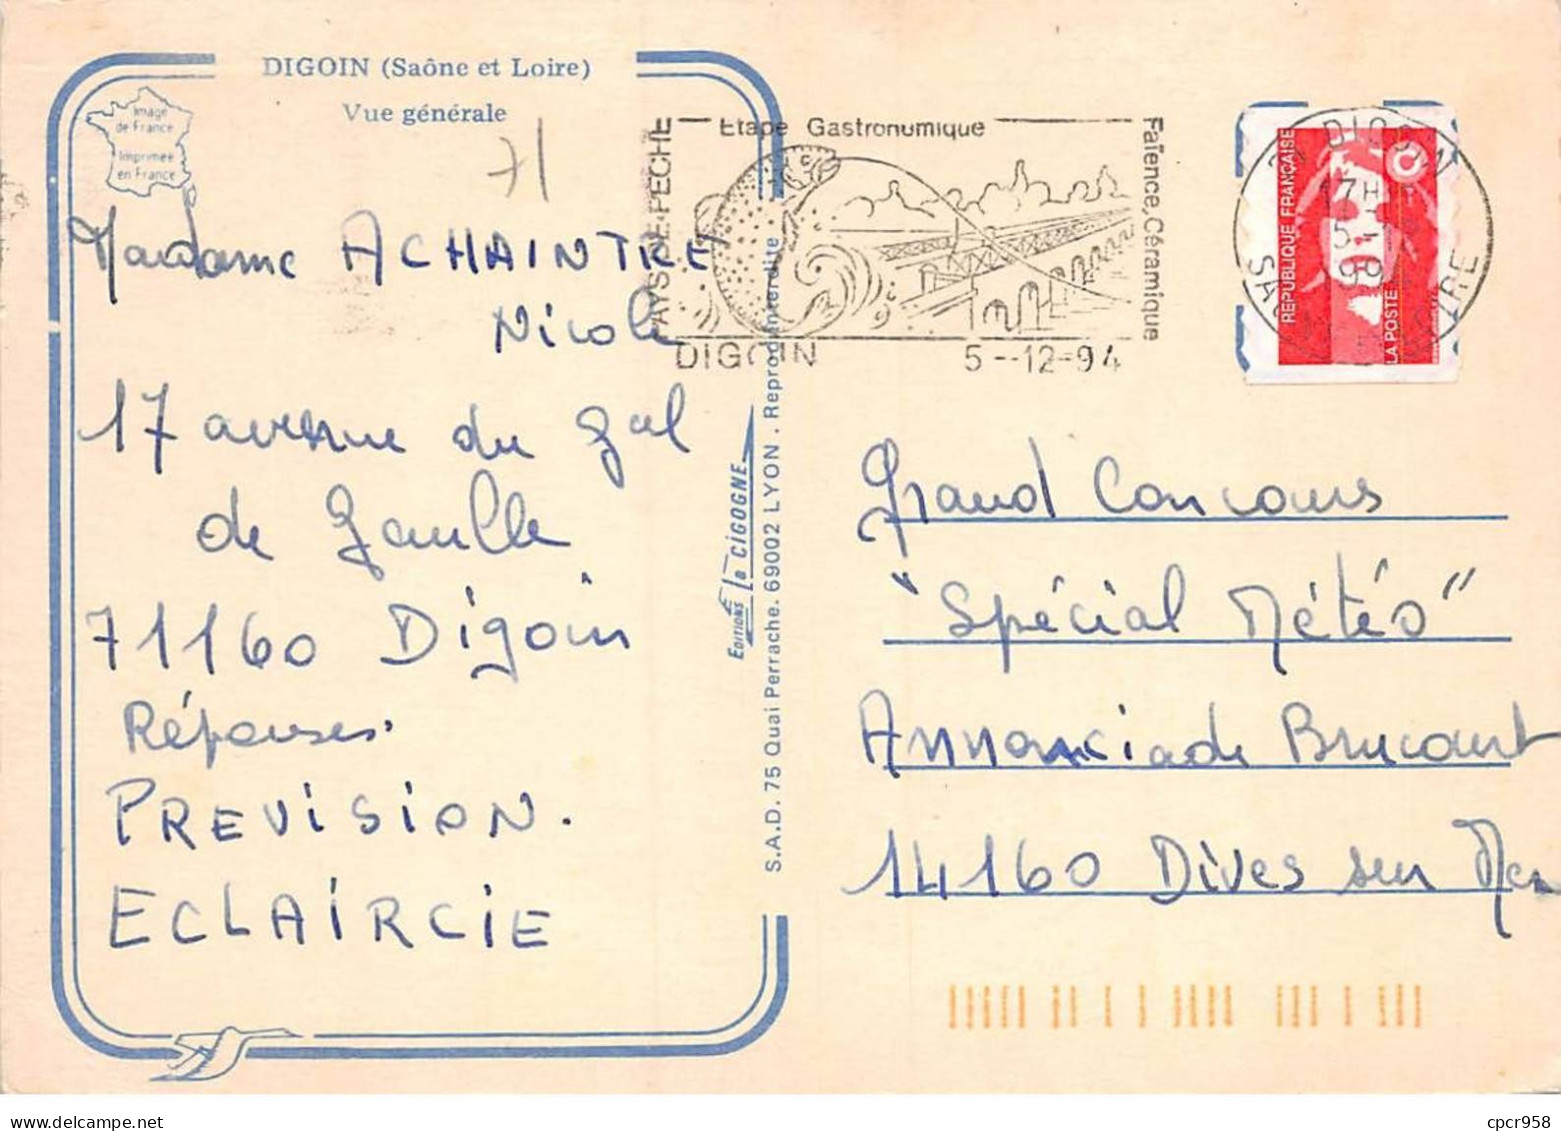 DIGOIN (Saône et Loire)
Vue générale
Image
de France
Imprimée
en France
71
Madame ACHAINTRE
Nicole
17 avenue du Gal
de Gaulle
71160 Digoin
Réponses.
PREVISION.
ECLAIRCIE
EDITIONS La CIGOGNE
S.A.D. 75 Quai Perrache. 69002 LYON . Reprod. interdite
PAYS DE PECHE
Etape Gastronomique
Faïence, Céramique
DIGOIN 5--12-94
71 DIGOIN
17H
5-
SAONE LOIRE
REPUBLIQUE FRANÇAISE
LA POSTE
Grand Concours
"Spécial Météo"
Annonciade Brucourt
14160 Dives sur Mer
cpcr958